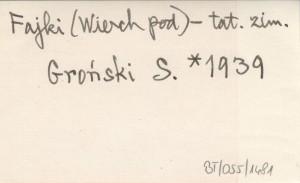 Fajki (Wierch pod) – tat. zim.
Groński S. *1939
BT/055/1481